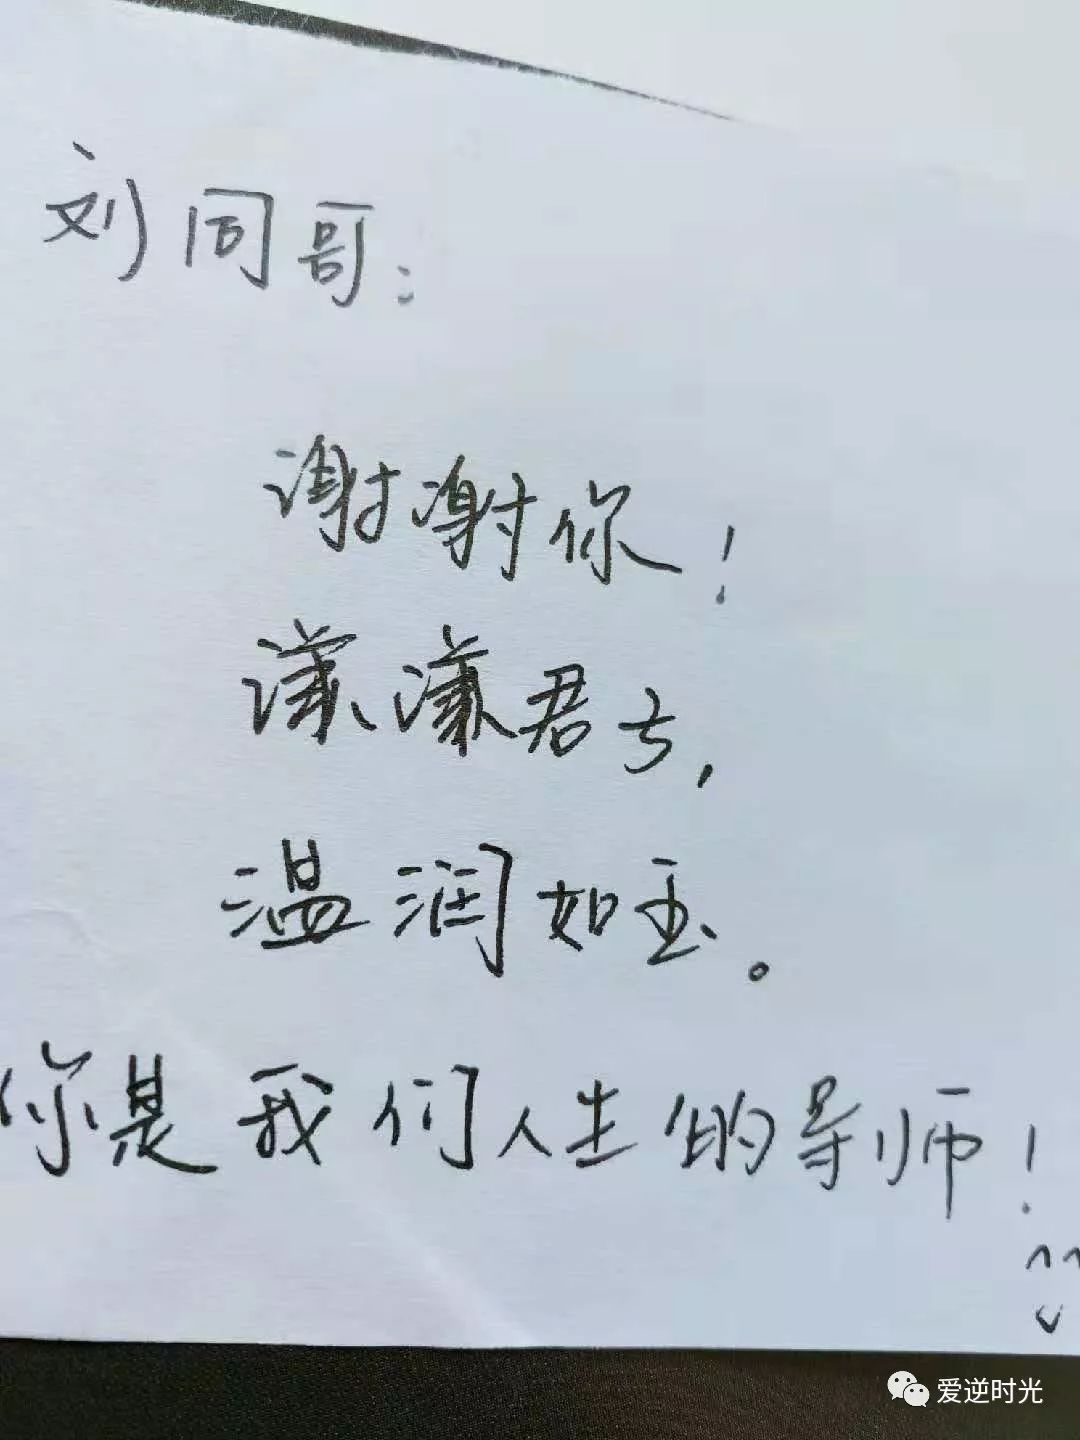 刘同哥:
谢谢你!
谦谦君子,
温润如玉。
你是我们人生的导师!
爱逆时光